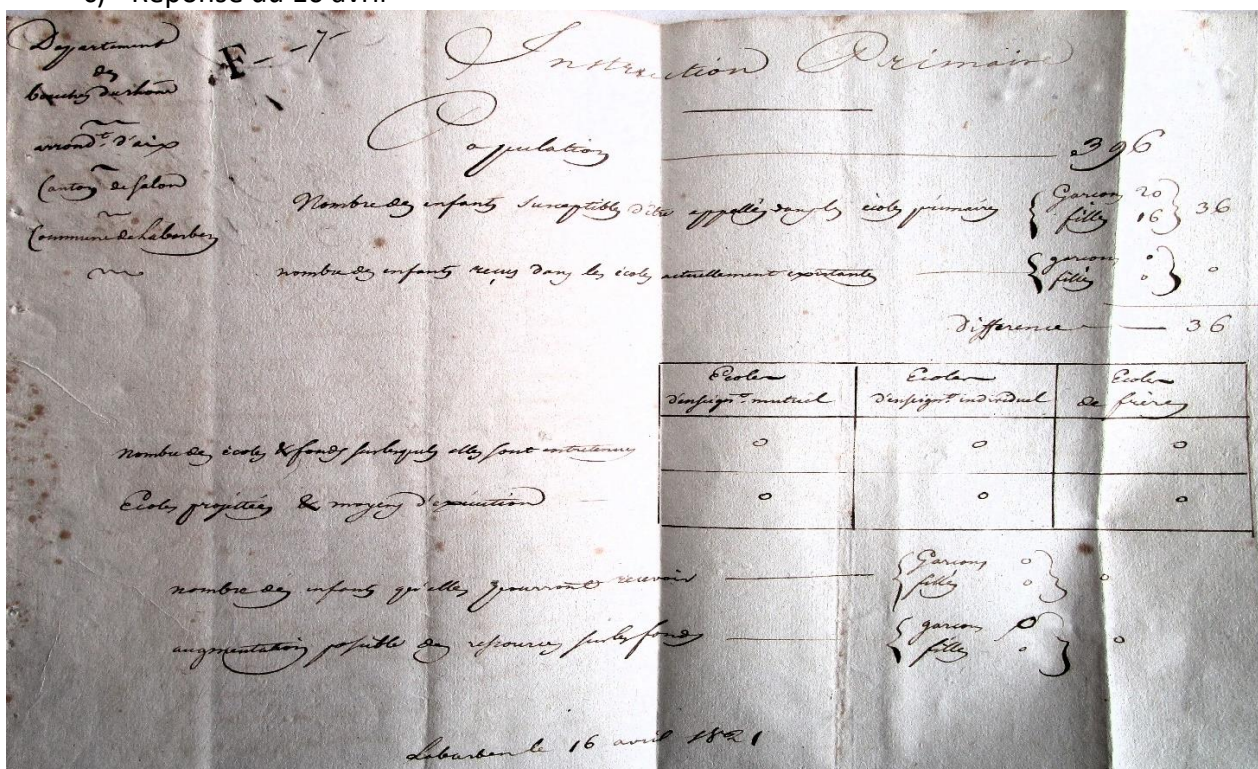 c) Réponse du 16 avril
Departement
des
bouches du rhone
arrond.t d'aix
Canton de Salon
Commune de Labarben
F - 7 -
Instruction Primaire
Population 396
Nombre des enfants susceptibles d'être appellés dans les écoles primaires { Garcons 20 filles 16 } 36
nombre des enfants reçus dans les écoles actuellement existantes { garcons 0 filles 0 } 0
difference 36
Ecoles d'enseign.t mutuel
Ecoles d'enseign.t individuel
Ecoles de frères
nombre des écoles & fonds sur lesquels elles sont entretenues 0 0 0
Ecoles projettées & moyens d'execution 0 0 0
nombre des enfants qu'elles pourront recevoir { Garcons 0 filles 0 } 0
augmentation possible des ressources sur les fonds { garcons 0 filles 0 } 0
Labarben le 16 avril 1821